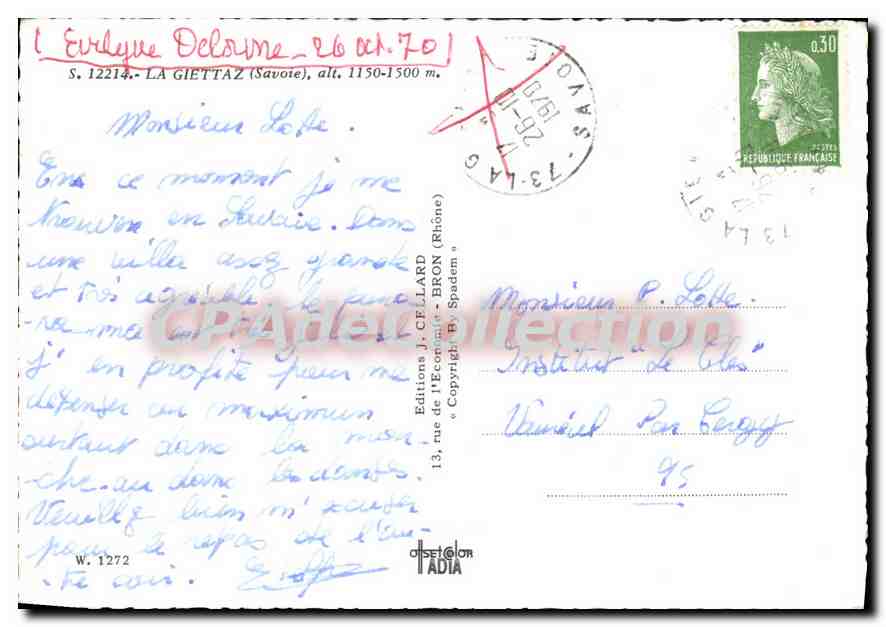 ( Evelyne Delorme - 26 Oct. 70 )
S. 12214.- LA GIETTAZ (Savoie), alt. 1150-1500 m.
Monsieur Lotte.
En ce moment je me
trouve en Savoie. Dans
une villa assez grande
et très agréable, le pano-
ra-ma est
j'en profite pour me
détenser au maximum
surtout dans la mon-
che ou dans les danses.
Veuillez bien m'excuser
pour le repas de l'au-
-te soir.
W. 1272
Editions J. CELLARD
13, rue de l'Economie - BRON (Rhône)
« Copyright By Spadem »
OFFSETCOLOR
IADIA
73-LA G
SAVOIE
26-10
1970
0,30
POSTES
REPUBLIQUE FRANÇAISE
73 LA GIE
Monsieur P. Lotte
Institut "Le Clos"
Vauréal Par Cergy
95
CPAdeCollection